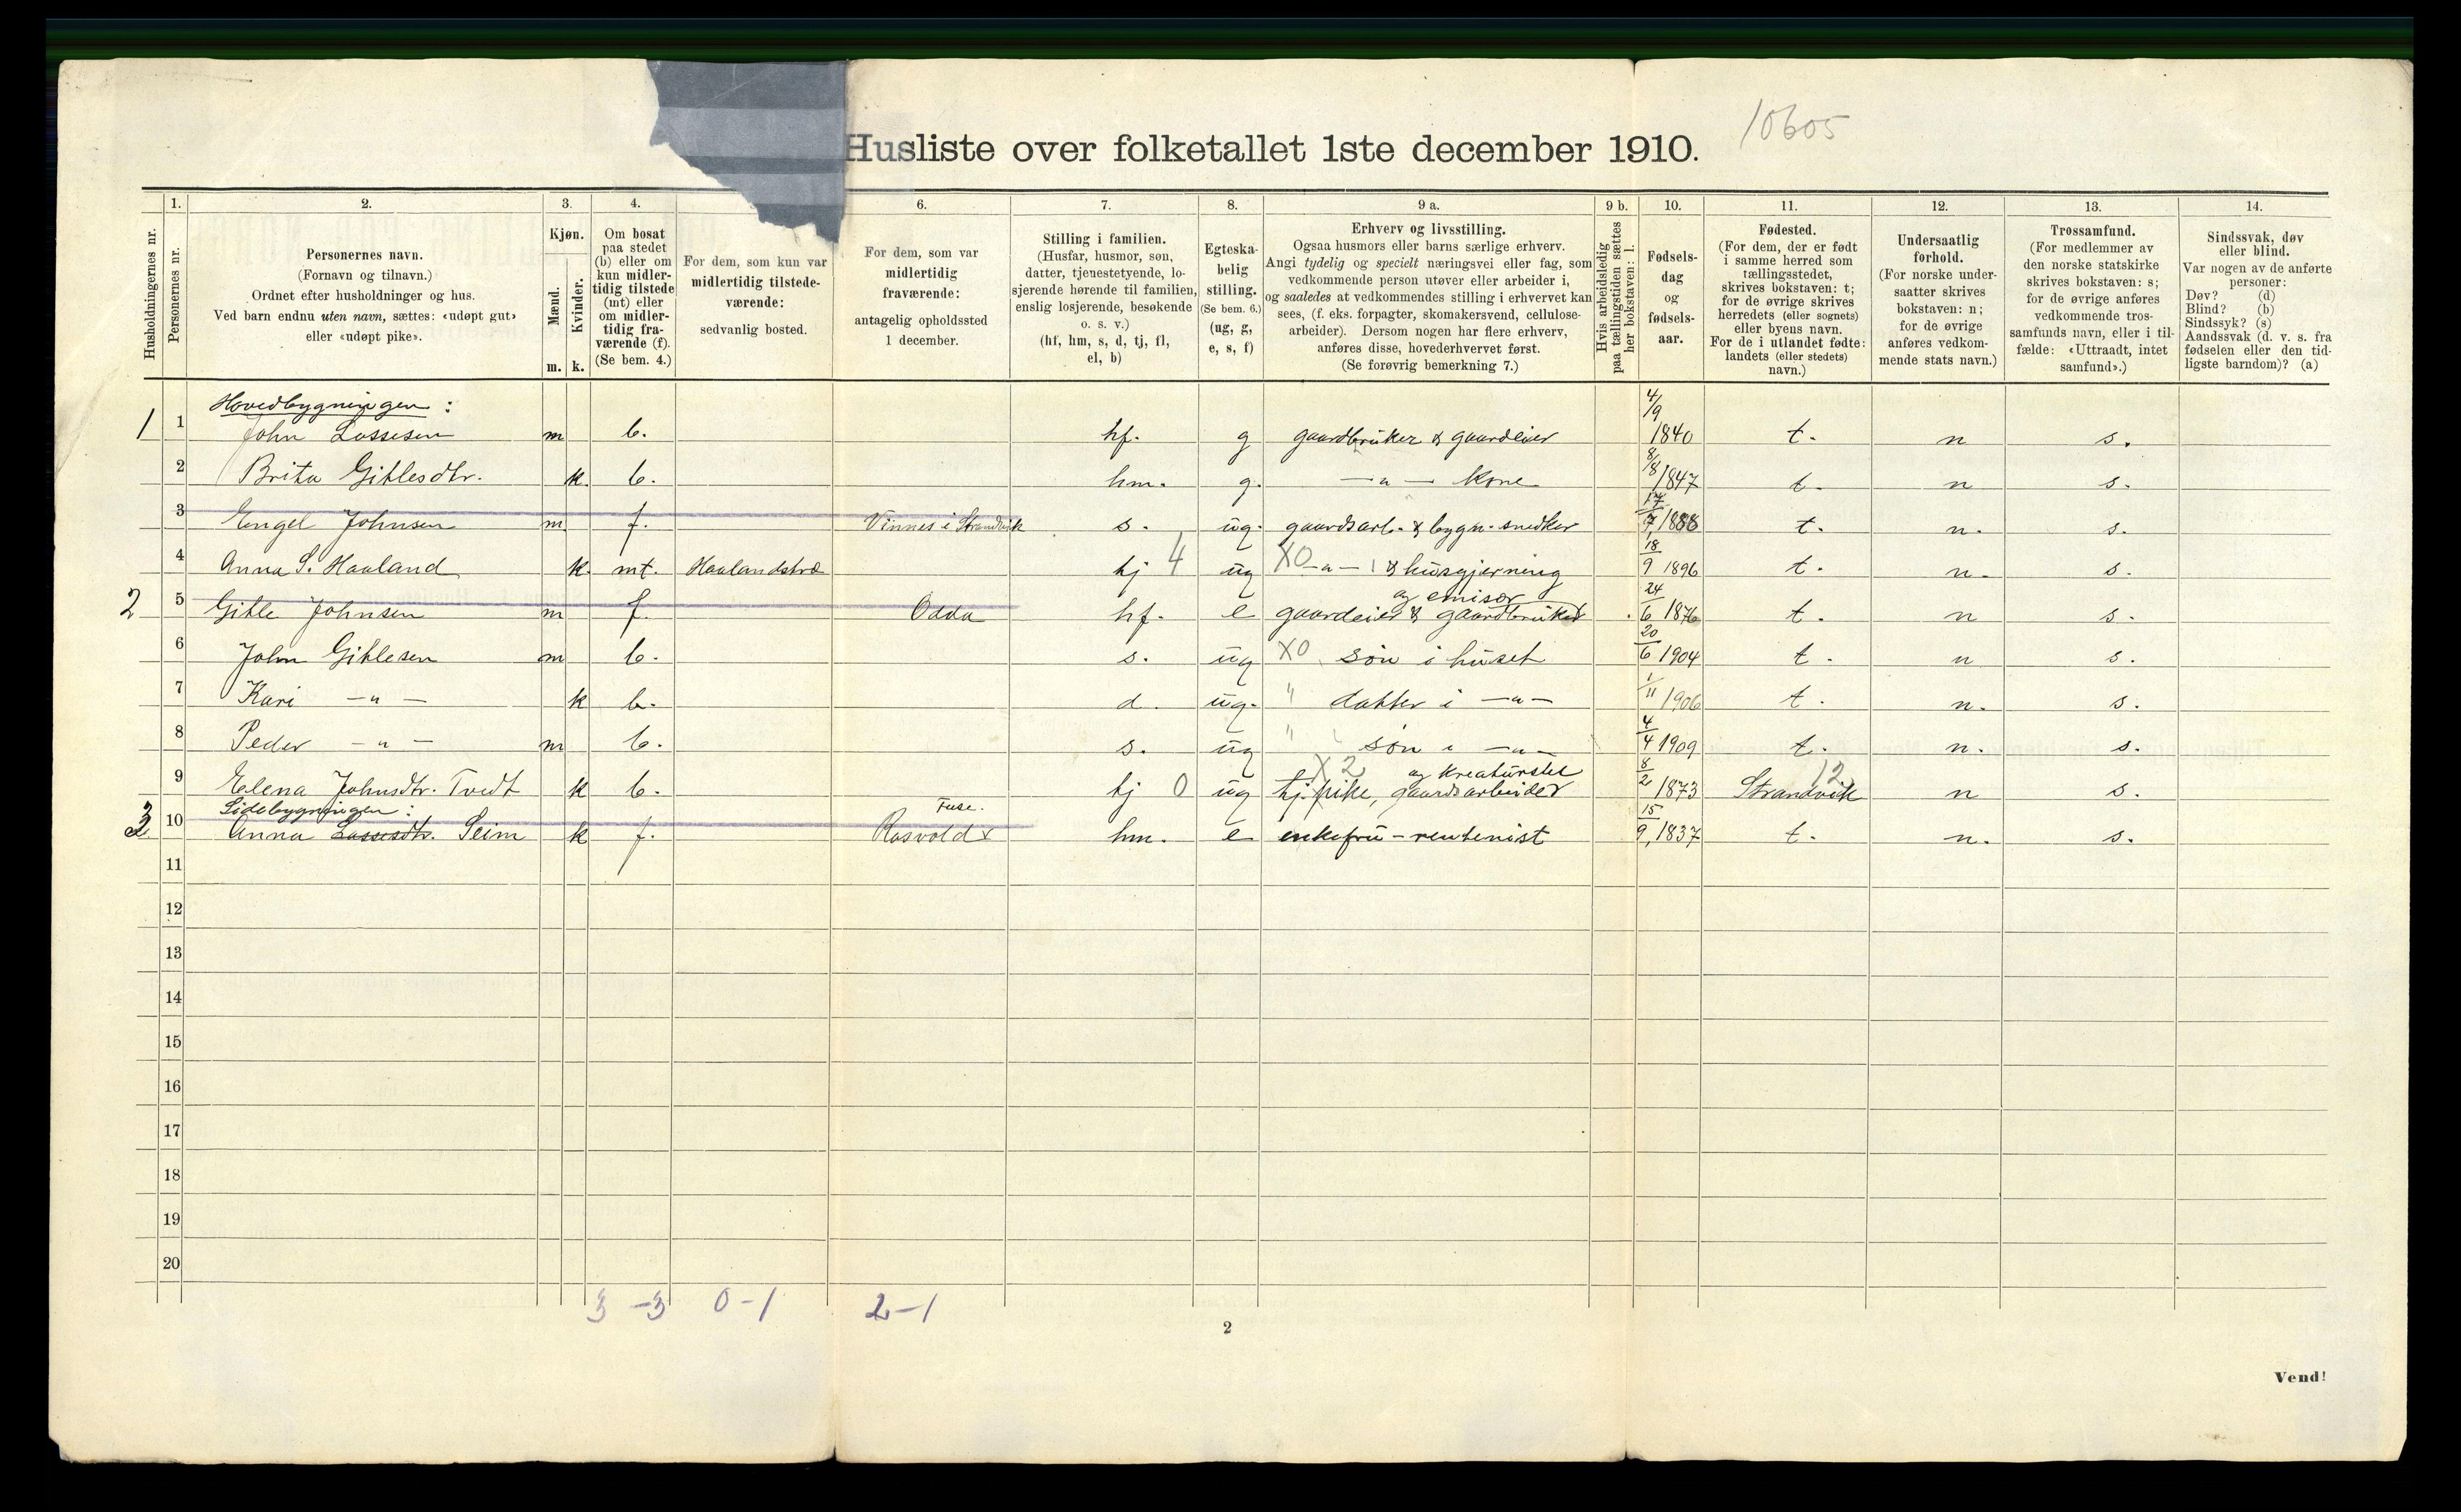 10605
Husliste over folketallet 1ste december 1910.
Husholdningernes nr.
1.
Personernes nr.
2.
Personernes navn.
(Fornavn og tilnavn.)
Ordnet efter husholdninger og hus.
Ved barn endnu uten navn, sættes: «udøpt gut»
eller «udøpt pike».
3.
Kjøn.
Mænd.
Kvinder.
m. k.
4.
Om bosat
paa stedet
(b) eller om
kun midler-
tidig tilstede
(mt) eller
om midler-
tidig fra-
værende (f).
(Se bem. 4.)
For dem, som kun var
midlertidig tilstede-
værende:
sedvanlig bosted.
6.
For dem, som var
midlertidig
fraværende:
antagelig opholdssted
1 december.
7.
Stilling i familien.
(Husfar, husmor, søn,
datter, tjenestetyende, lo-
sjerende hørende til familien,
enslig losjerende, besøkende
o. s. v.)
(hf, hm, s, d, tj, fl,
el, b)
8.
Egteska-
belig
stilling.
(Se bem. 6.)
(ug, g,
e, s, f)
9 a.
Erhverv og livsstilling.
Ogsaa husmors eller barns særlige erhverv.
Angi tydelig og specielt næringsvei eller fag, som
vedkommende person utøver eller arbeider i,
og saaledes at vedkommendes stilling i erhvervet kan
sees, (f. eks. forpagter, skomakersvend, cellulose-
arbeider). Dersom nogen har flere erhverv,
anføres disse, hovederhvervet først.
(Se forøvrig bemerkning 7.)
9 b.
Hvis arbeidsledig
paa tællingstiden sættes
her bokstaven: l.
10.
Fødsels-
dag
og
fødsels-
aar.
11.
Fødested.
(For dem, der er født
i samme herred som
tællingsstedet,
skrives bokstaven: t;
for de øvrige skrives
herredets (eller sognets)
eller byens navn.
For de i utlandet fødte:
landets (eller stedets)
navn.)
12.
Undersaatlig
forhold.
(For norske under-
saatter skrives
bokstaven: n;
for de øvrige
anføres vedkom-
mende stats navn.)
13.
Trossamfund.
(For medlemmer av
den norske statskirke
skrives bokstaven: s;
for de øvrige anføres
vedkommende tros-
samfunds navn, eller i til-
fælde: «Uttraadt, intet
samfund».)
14.
Sindssvak, døv
eller blind.
Var nogen av de anførte
personer:
Døv? (d)
Blind? (b)
Sindssyk? (s)
Aandssvak (d. v. s. fra
fødselen eller den tid-
ligste barndom)? (a)
Hovedbygningen:
1 1 John Lassesen m b. hf. g gaardbruker & gaardeier 4/9 1840 t. n s.
2 Brita Gitlesdtr. k. b. hm. g. —"— kone 8/8 1847 t. n s.
3 Engel Johnsen m f. Vinnes i Strandvik s. ug. gaardsarb. & bygn. snedker 17/7 1888 t. n. s.
4 Anna S. Haaland k. mt. Haalandstræ tj 4 ug X0 —"— & husgjerning 18/9 1896 t. n. s.
og emisær
2 5 Gitle Johnsen m f. Odda hf. e gaardeier & gaardbruker 24/6 1876 t. n s.
6 John Gitlesen m b. s. ug X0 søn i huset 20/6 1904 t. n s.
7 Kari —"— k b. d. ug. " datter i —"— 1/11 1906 t. n. s.
8 Peder —"— m b. s. ug " søn i —"— 4/4 1909 t. n. s.
X2 og kreaturstel 12
9 Elena Johnsdtr. Tvedt k b. tj 0 ug tj. pike, gaardsarbeider 8/2 1873 Strandvik n s.
Sidebygningen: Fuse.
3 10 Anna Lassesdtr. Seim k f. x hm. e enkefru - rentenist 15/9 1837 t. n. s.
11
12
13
14
15
16
17
18
19
20
3 - 3 0 - 1 2 - 1
2
Vend!